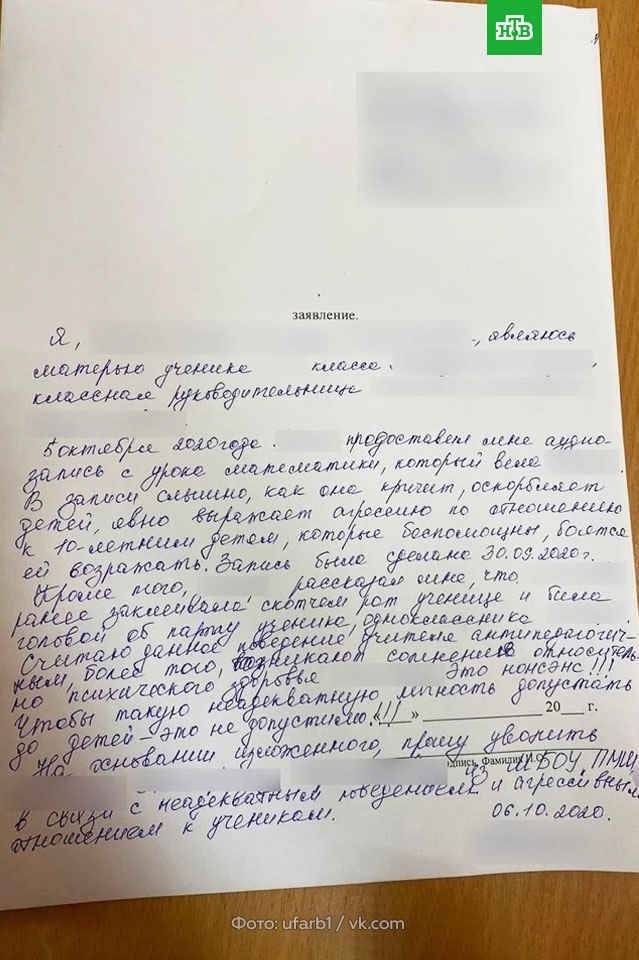 НТВ
заявление.
Я, , являюсь
матерью ученика класса ,
классная руководительница
5 октября 2020 года. предоставил мне аудио-
запись с урока математики, который вела
В записи слышно, как она кричит, оскорбляет
детей, явно выражает агрессию по отношению
к 10-летним детям, которые беспомощны, боятся
ей возражать. Запись была сделана 30.09.2020г.
Кроме того, рассказал мне, что
ранее заклеивала скотчем рот ученице и била
головой об парту ученика, одноклассника
Считаю данное поведение учителя антипедагогич-
ным, более того, возникают сомнения относитель-
но психического здоровья Это нонсэнс!!!
Чтобы такую неадекватную личность допустать
до детей - это не допустимо!!! « » 20 г.
На основании изложенного, прошу уволить
подпись, Фамилия И.О.
из МБОУ ПМШ
в связи с неадекватным поведением и агрессивным
отношением к ученикам. 06.10.2020.
Фото: ufarb1 / vk.com